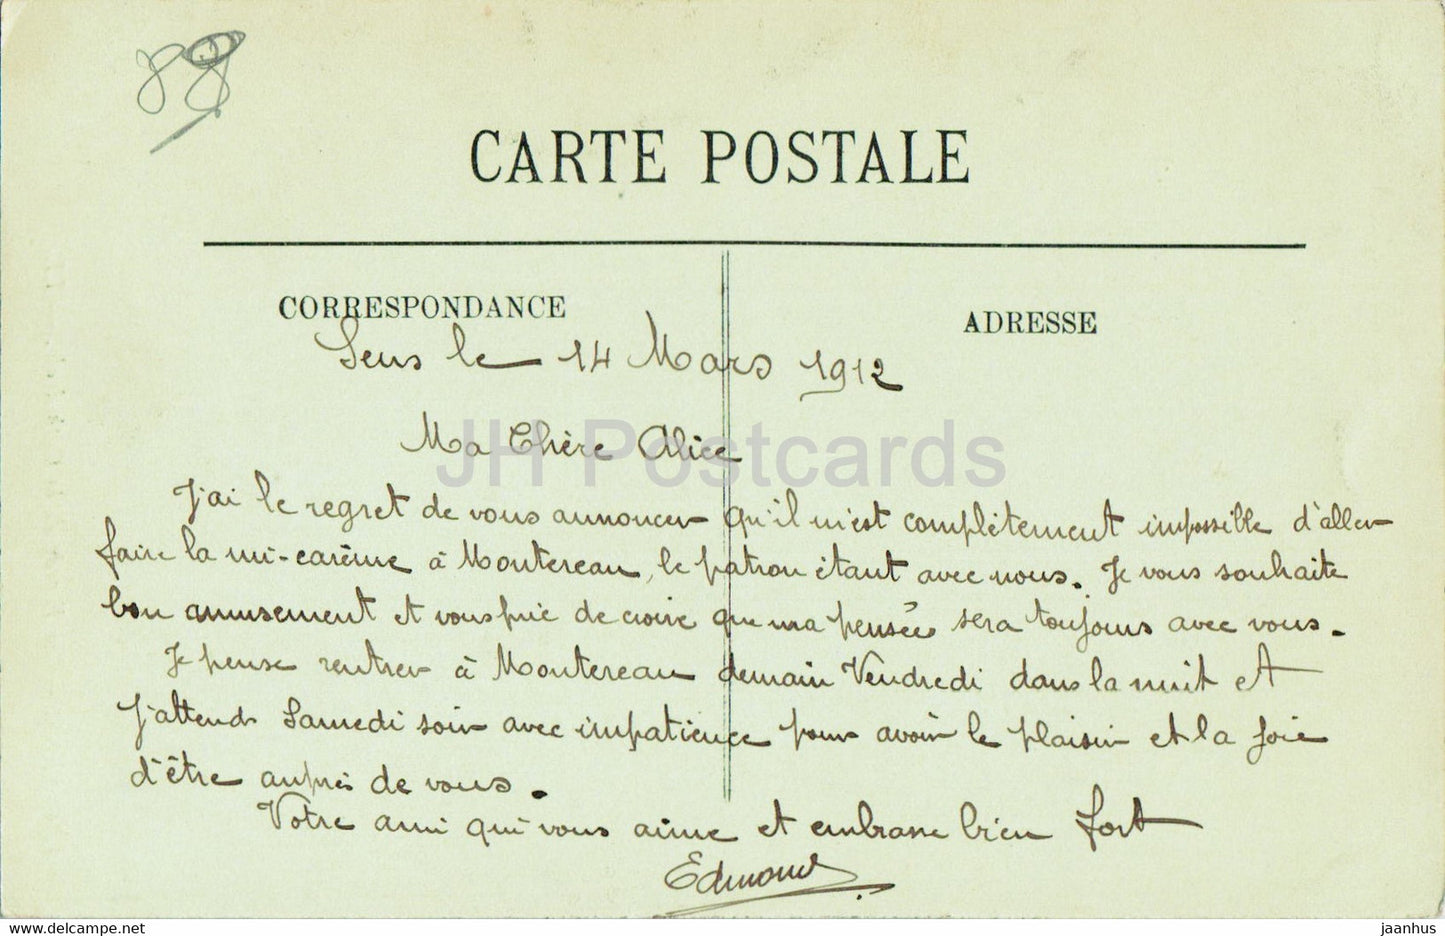 89
CARTE POSTALE
CORRESPONDANCE
ADRESSE
Sens le 14 Mars 1912
Ma Chère Alice
JH Postcards
J'ai le regret de vous annoncer qu'il m'est complètement impossible d'aller
faire la mi-carême à Montereau, le patron étant avec nous. Je vous souhaite
bon amusement et vous prie de croire que ma pensée sera toujours avec vous.
Je pense rentrer à Montereau demain Vendredi dans la nuit et
j'attends Samedi soir avec impatience pour avoir le plaisir et la joie
d'être auprès de vous.
Votre ami qui vous aime et embrasse bien fort
Edmond
hipstamp.com
jaanhus